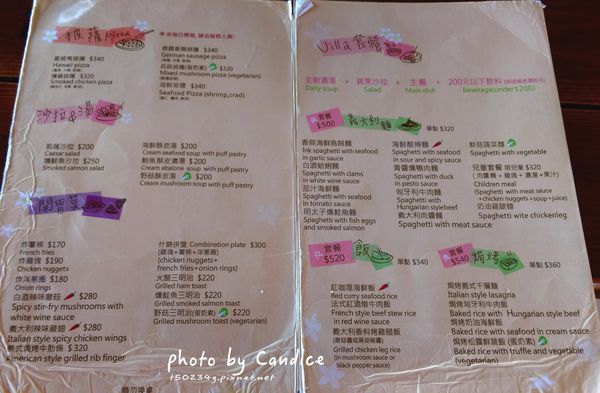 披薩 pizza
夏威夷披薩 $340
Hawaii pizza
燻雞披薩 $320
Smoked chicken pizza
德國香腸披薩 $340
German sausage pizza
白菇披薩(蛋奶素) $320
Mixed mushroom pizza (vegetarian)
海鮮披薩 $340
Seafood Pizza (shrimp,crad)
沙拉&湯
凱薩沙拉 $200
Caesar salad
燻鮭魚沙拉 $250
Smoked salmon salad
海鮮酥皮湯 $200
Cream seafood soup with puff pastry
鮑魚酥皮濃湯 $200
Cream abalone soup with puff pastry
野菇酥皮湯 $200
Cream mushroom soup with puff pastry
開胃菜
炸薯條 $170
French fries
炸雞塊 $190
Chicken nuggets
炸洋蔥圈 $180
Onion rings
白酒辣味蘑菇 $280
Spicy stir-fry mushrooms with
white wine sauce
義大利辣味雞翅 $280
Italian style spicy chicken wings
美式碳烤牛肋條 $320
American style grilled rib finger
什錦拼盤 Combination plate $300
(雞塊+薯條+洋蔥圈)
chicken nuggets+
french fries+onion rings)
火腿三明治 $180
Grilled ham toast
燻鮭魚三明治 $200
Grilled smoked salmon toast
野菇三明治(蛋奶素) $200
Grilled mushroom toast (vegetarian)
Villa 套餐
主廚濃湯 + 蔬果沙拉 + 主餐 + 200元以下飲料
Daily soup Salad Main dish Beverage(under $200)
套餐 $500 義大利麵 單點 $320
蒜香海鮮烏賊麵
Ink spaghetti with seafood
in garlic sauce
白酒蛤蜊麵
Spaghetti with clams
in wine wine sauce
茄汁海鮮麵
Spaghetti with seafood
in tomato sauce
明太子燻鮭魚麵
Spaghetti with fish eggs
and smokey salmon
海鮮酸辣麵
Spaghetti with seafood
in sour and spicy sauce
青醬燻鴨肉麵
Spaghetti with duck
in pesto sauce
匈牙利牛肉麵
Spaghetti with
Hungarian style beef
義大利肉醬麵
Spaghetti with meat sauce
鮮菇蔬菜麵
Spaghetti with vegetable
兒童套餐 限兒童 $320
(肉醬麵+雞塊+濃湯+果汁)
Children meal
(Spaghetti with meat sauce
+chicken nuggets+soup+juice)
奶油雞腿麵
Spaghetti wite chickenleg
套餐 $520 飯 單點 $340
紅咖哩海鮮飯
Red curry seafood rice
法式紅酒燉牛肉飯
French style beef stew rice
in red wine sauce
義大利香料烤雞腿飯
(蘑菇醬或黑胡椒醬)
Grilled chicken leg rice
(in mushroom sauce or
black pepper sauce)
套餐 $540 焗烤 單點 $360
焗烤義式千層麵
Italian style lasagna
焗烤匈牙利牛肉飯
Baked rice with Hungarian style beef
焗烤奶油海鮮飯
Baked rice with seafood in cream sauce
焗烤松露鮮蔬飯(蛋奶素)
Baked rice with truffle and vegetable
(vegetarian)
Photo by Candice
t50234g.pixnet.net